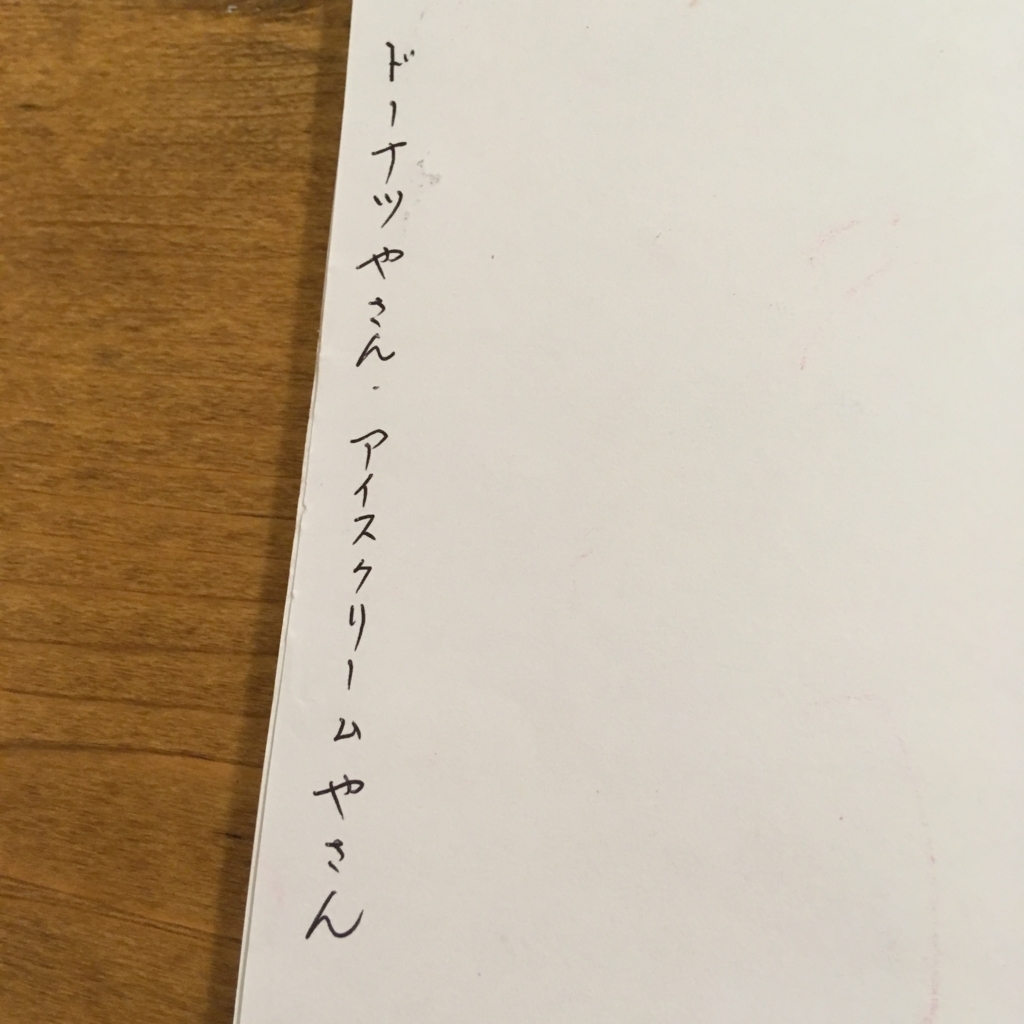 ドーナツやさん・アイスクリームやさん